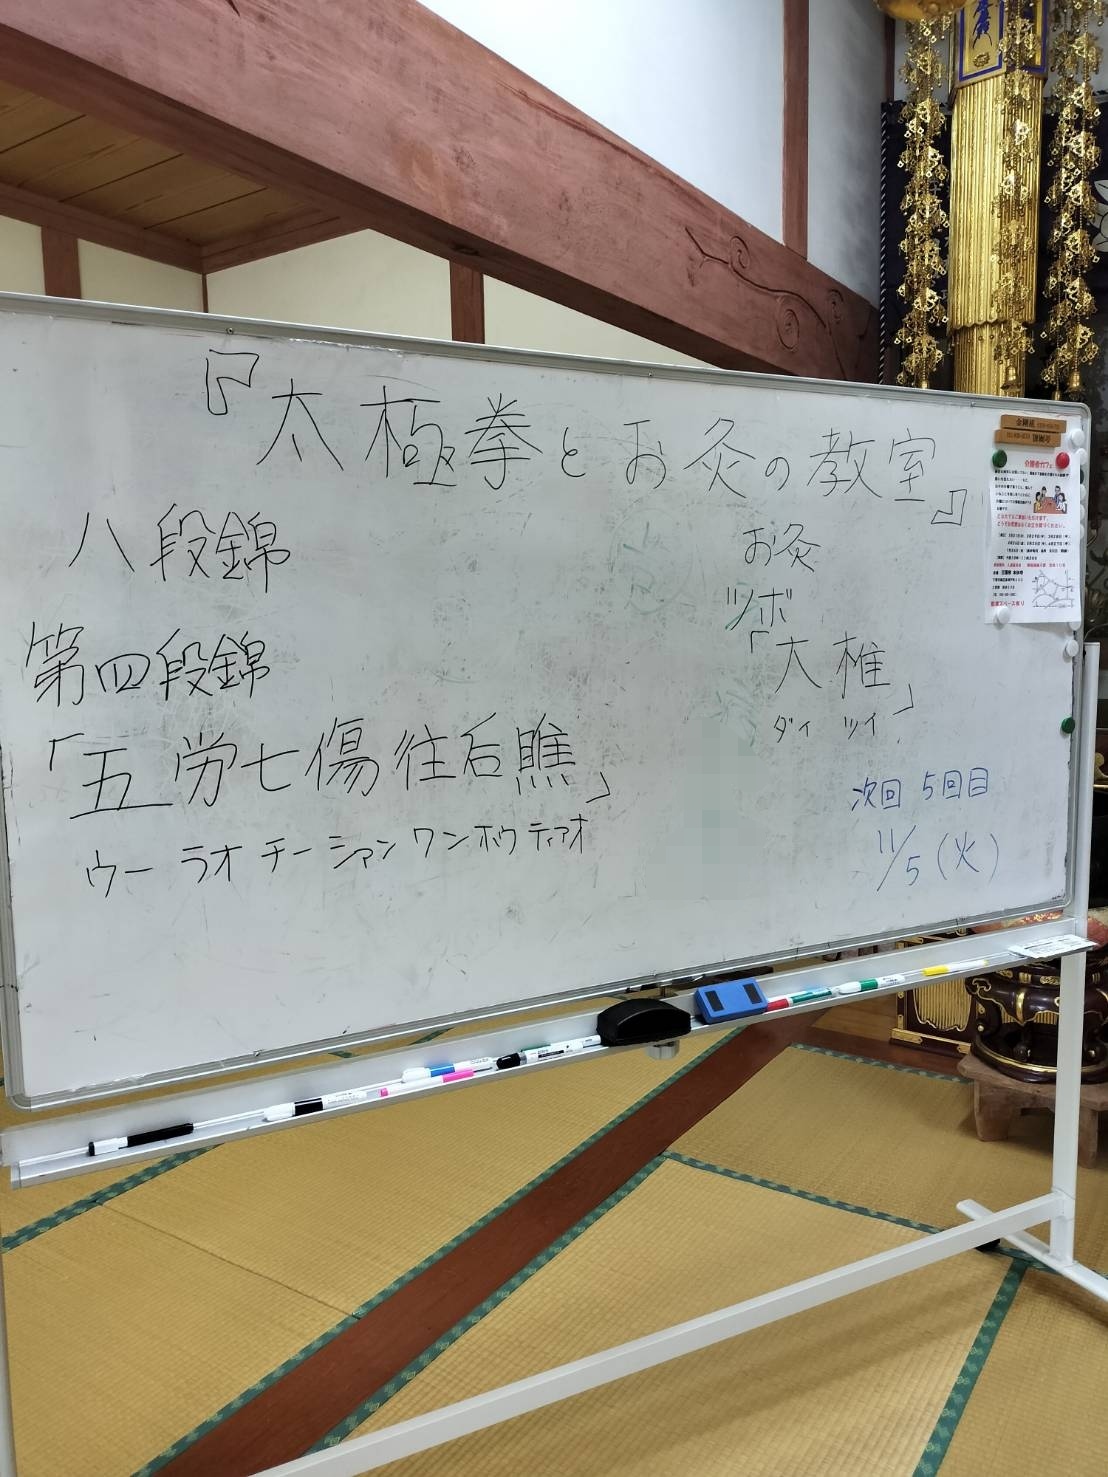 『太極拳とお灸の教室』
八段錦
第四段錦
「五労七傷往后瞧」
ウー ラオ チー シァン ワン ホウ ティアオ
お灸
ツボ
「大椎」
ダイ ツイ
次回 5回目
11/5(火)
介護者カフェ